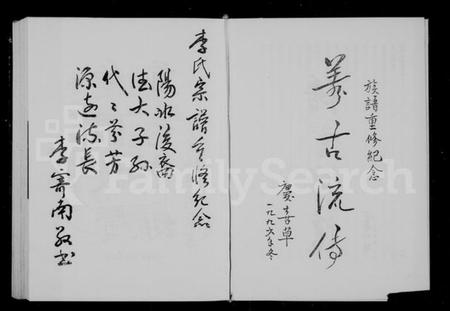 族譜重修紀念
萬古流傳
慶喜草
一九九六年冬
李氏宗譜重修紀念
陽冰後裔
大子孫
代々芬芳
源遠流長
李寄南敬书
FamilySearch